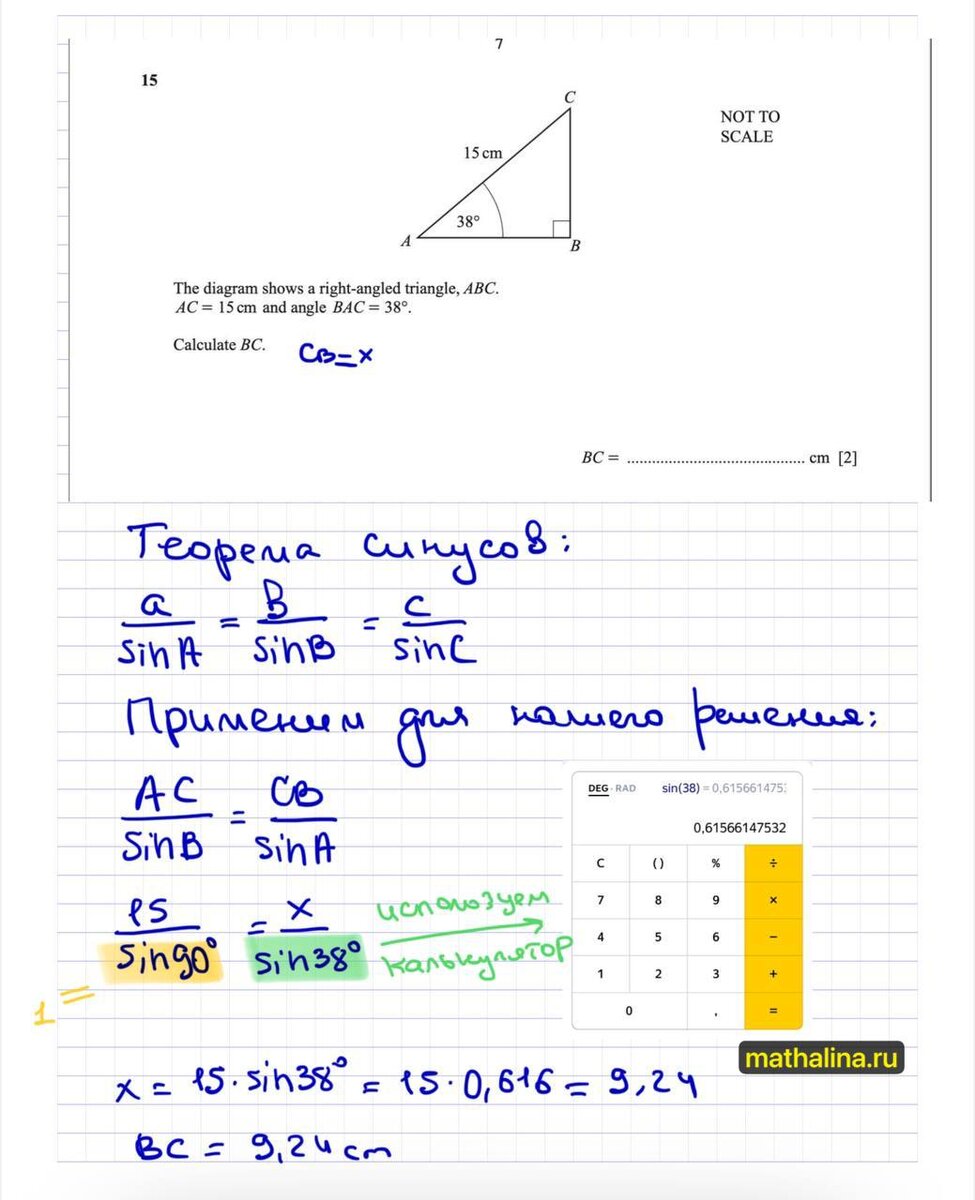 7
15
C
NOT TO
SCALE
15 cm
38°
A
B
The diagram shows a right-angled triangle, ABC.
AC = 15 cm and angle BAC = 38°.
Calculate BC. CB = x
BC = ............................................ cm [2]
Теорема синусов:
a/sin A = B/sin B = c/sin C
Применим для нашего решения:
AC/sin B = CB/sin A
DEG · RAD sin(38) = 0,615661475
0,61566147532
C () % ÷
7 8 9 ×
4 5 6 −
1 2 3 +
0 , =
15/sin 90° = x/sin 38° используем
калькулятор
1 =
mathalina.ru
x = 15 · sin 38° = 15 · 0,616 = 9,24
BC = 9,24 cm